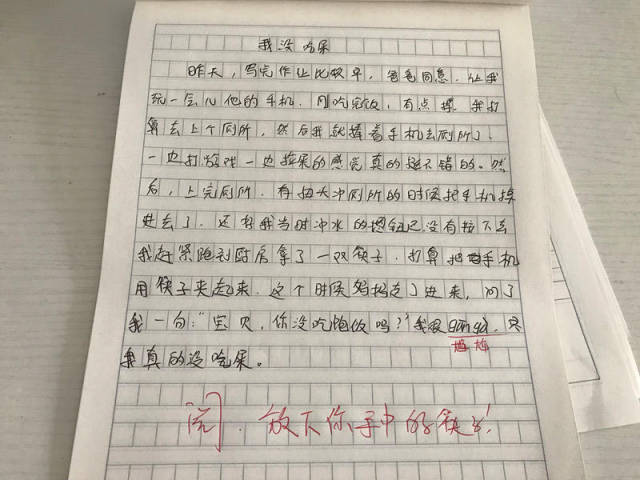 我没吃屎
昨天，写完作让比较早，爸爸同意，让我
玩一会儿他的手机。刚吃完饭，有点撑，我打
算去上个厕所，然后我就握着手机去厕所了！
一边打游戏一边拉屎的感觉真的挺不错的。然
后，上完厕所，有扭头冲厕所的时候把手机掉
进去了。还好我当时冲水的按钮还没有拉下去
我赶紧跑到厨房拿了一双筷子，打算把手机
用筷子夹起来，这个时候妈妈走了进来，问了
我一句："宝贝，你没吃饱饭吗？"我很gān gà，
尴尬
我真的没吃屎。
阅，放下你手中的筷子！